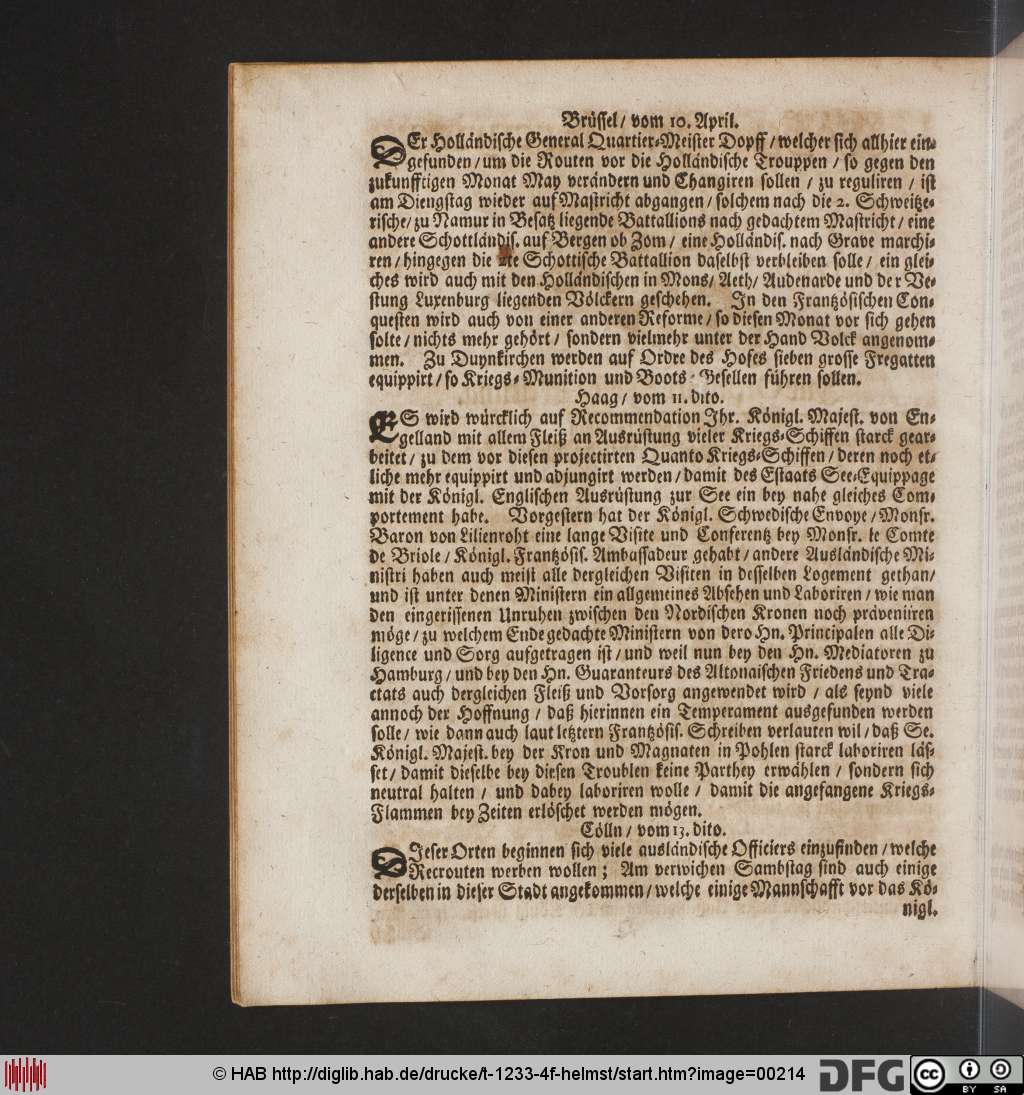 Brüssel / vom 10. April.
DEr Holländische General Quartier-Meister Dopff / welcher sich allhier ein-
gefunden / um die Routen vor die Holländische Trouppen / so gegen den
zukunfftigen Monat May verändern und Changiren sollen / zu reguliren / ist
am Diengstag wieder auf Mastricht abgangen / solchem nach die 2. Schweitze-
rische / zu Namur in Besatz liegende Battallions nach gedachtem Mastricht / eine
andere Schottländis. auf Bergen ob Zom / eine Holländis. nach Grave marchi-
ren / hingegen die 2te Schottische Battallion daselbst verbleiben solle / ein glei-
ches wird auch mit den Holländischen in Mons / Aeth / Audenarde und der Ve-
stung Luxenburg liegenden Völckern geschehen. In den Frantzösischen Con-
questen wird auch von einer anderen Reforme / so diesen Monat vor sich gehen
solte / nichts mehr gehört / sondern vielmehr unter der Hand Volck angenom-
men. Zu Duynkirchen werden auf Ordre des Hofes sieben grosse Fregatten
equippirt / so Kriegs-Munition und Boots-Gesellen führen sollen.
Haag / vom 11. dito.
ES wird würcklich auf Recommendation Ihr. Königl. Majest. von En-
gelland mit allem Fleiß an Ausrüstung vieler Kriegs-Schiffen starck gear-
beitet / zu dem vor diesen projectirten Quanto Kriegs-Schiffen / deren noch et-
liche mehr equippirt und adjungirt werden / damit des Estaats See-Equippage
mit der Königl. Englischen Ausrüstung zur See ein bey nahe gleiches Com-
portement habe. Vorgestern hat der Königl. Schwedische Envoye / Monsr.
Baron von Lilienroht eine lange Visite und Conferentz bey Monsr. le Comte
de Briole / Königl. Frantzösis. Ambassadeur gehabt / andere Ausländische Mi-
nistri haben auch meist alle dergleichen Visiten in desselben Logement gethan /
und ist unter denen Ministern ein allgemeines Absehen und Laboriren / wie man
den eingerissenen Unruhen zwischen den Nordischen Kronen noch präveniiren
möge / zu welchem Ende gedachte Ministern von dero Hn. Principalen alle Di-
ligence und Sorg aufgetragen ist / und weil nun bey den Hn. Mediatoren zu
Hamburg / und bey den Hn. Guaranteurs des Altonaischen Friedens und Tra-
ctats auch dergleichen Fleiß und Vorsorg angewendet wird / als seynd viele
annoch der Hoffnung / daß hierinnen ein Temperament ausgefunden werden
solle / wie dann auch laut letztern Frantzösis. Schreiben verlauten wil / daß Se.
Königl. Majest. bey der Kron und Magnaten in Pohlen starck laboriren läs-
set / damit dieselbe bey diesen Troublen keine Parthey erwählen / sondern sich
neutral halten / und dabey laboriren wolle / damit die angefangene Kriegs-
Flammen bey Zeiten erlöschet werden mögen.
Cölln / vom 13. dito.
DIeser Orten beginnen sich viele ausländische Officiers einzufinden / welche
Recrouten werben wollen ; Am verwichen Sambstag sind auch einige
derselben in dieser Stadt angekommen / welche einige Mannschafft vor das Kö-
nigl.
© HAB http://diglib.hab.de/drucke/t-1233-4f-helmst/start.htm?image=00214
DFG
cc BY SA